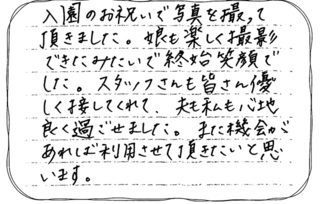 入園のお祝いで写真を撮って
頂きました。娘も楽しく撮影
できたみたいで終始笑顔で
した。スタッフさんも皆さん優
しく接してくれて、夫も私も心地
良く過ごせました。また機会が
あれば利用させて頂きたいと思
います。